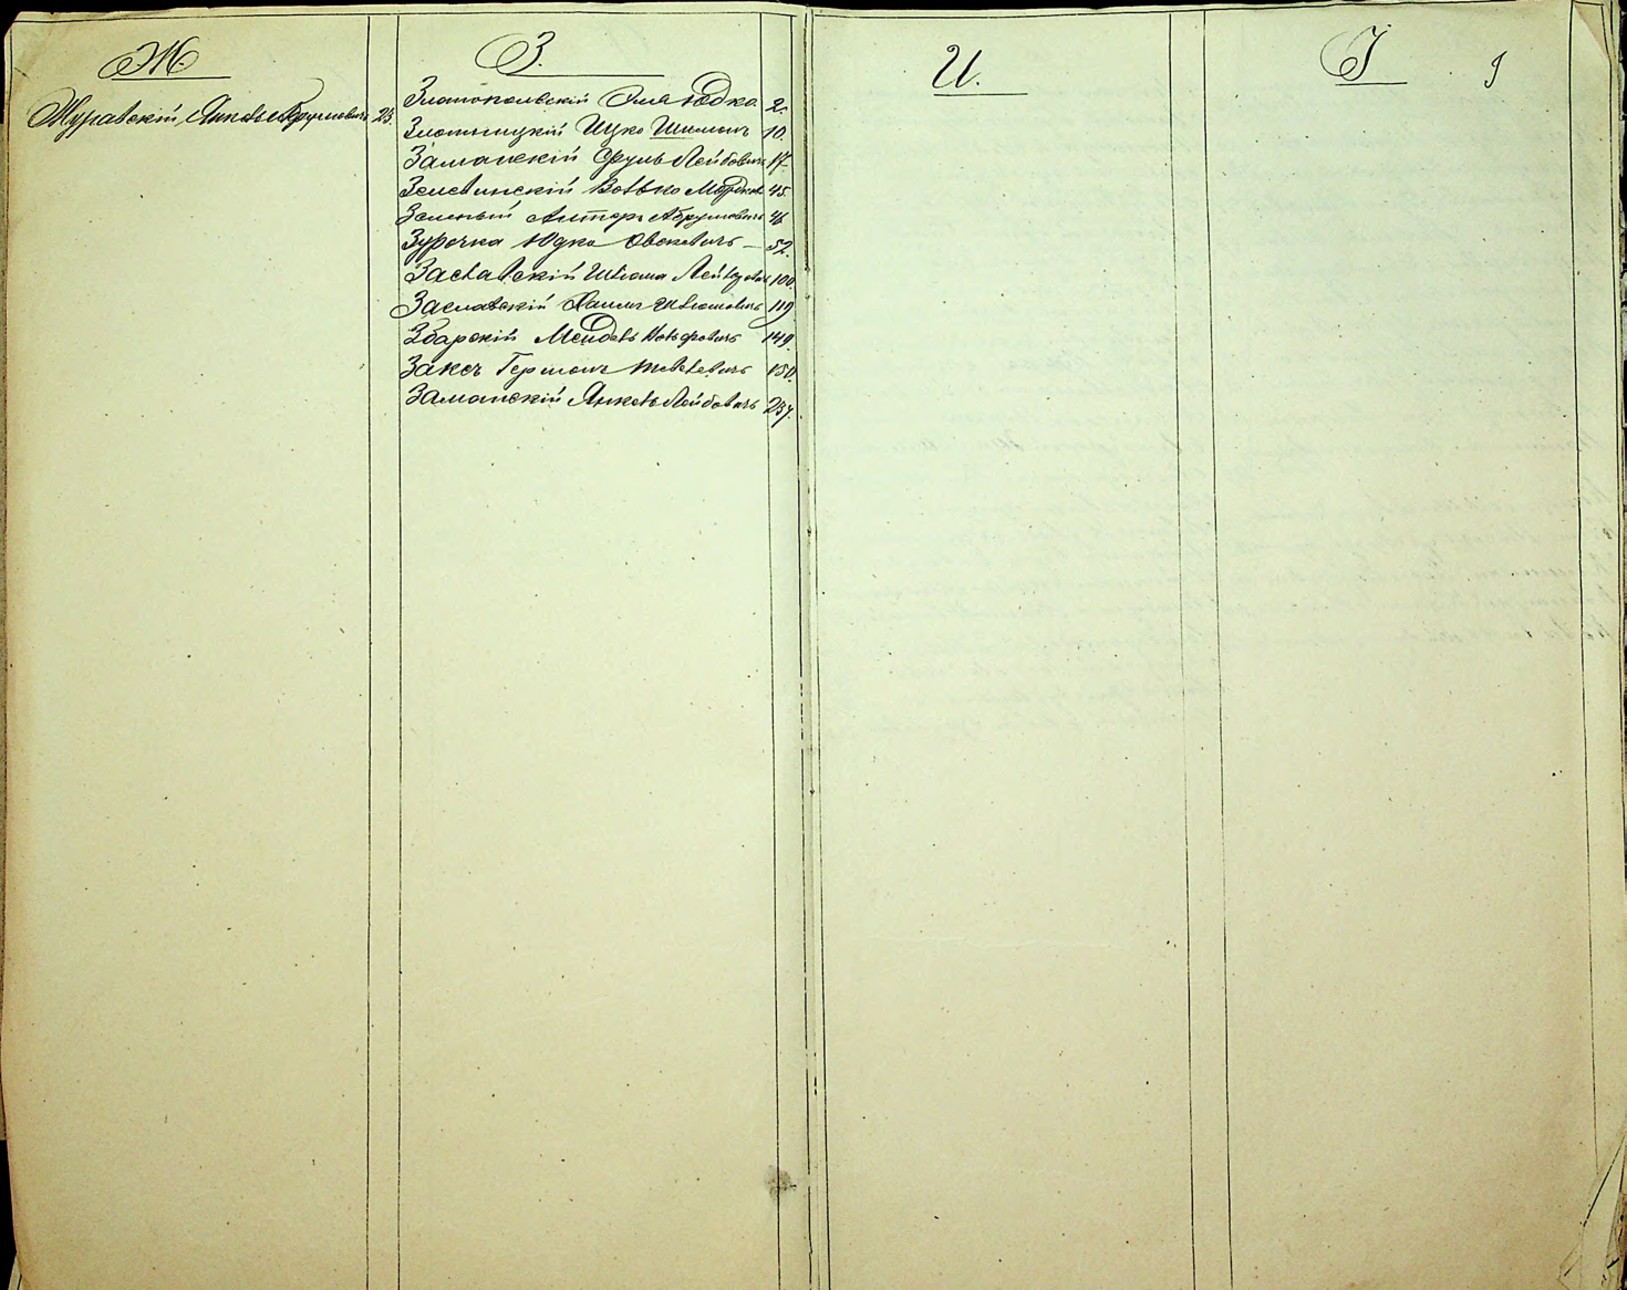 Ж
Журавскій Янкель Абрумовичъ 23.
З.
Златопольскій Эля Юдко 2.
Злотницкій Ицко Шимонъ 10.
Заманскій Сруль Лейбовичъ 17
Зелевинскій Волько Мордков 45.
Зеленый Алтеръ Абрумовичъ 46
Зурочка Юдко Овсіевичъ — 52.
Заславскій Шлёма Лейзеровичъ 100
Заславскій Хаимъ Шлёмовичъ 119
Збарскій Мендель Вольфовичъ 149.
Заксъ Германъ 150.
Заманскій Янкель Лейбовичъ 237.
И.
І 9